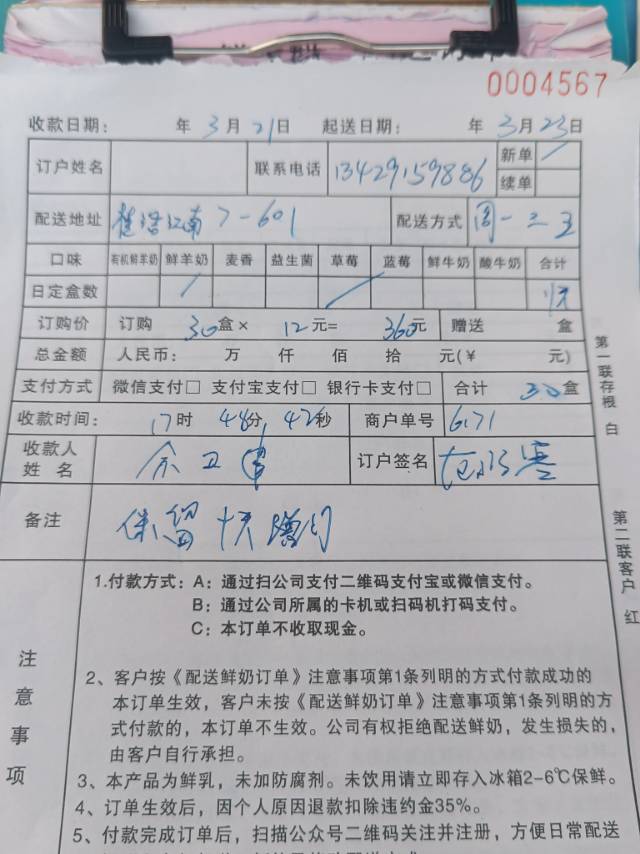 0004567
收款日期： 年 3月 21日 起送日期： 年 3月 23日
订户姓名 联系电话 13429159886 新单 /
续单
配送地址 江南 7-601 配送方式 周一三五
口味 有机鲜羊奶 鲜羊奶 麦香 益生菌 草莓 蓝莓 鲜牛奶 酸牛奶 合计
日定盒数 / /
订购价 订购 30盒× 12元= 360元 赠送 盒
总金额 人民币： 万 仟 佰 拾 元(￥ 元)
支付方式 微信支付□ 支付宝支付□ 银行卡支付□ 合计 30盒
收款时间： 17时 48分 42秒 商户单号 6171
收款人姓名 余卫军 订户签名
备注 保留
第一联存根 白
第二联客户 红
注意事项
1.付款方式：A：通过扫公司支付二维码支付宝或微信支付。
B：通过公司所属的卡机或扫码机打码支付。
C：本订单不收取现金。
2、客户按《配送鲜奶订单》注意事项第1条列明的方式付款成功的
本订单生效，客户未按《配送鲜奶订单》注意事项第1条列明的方
式付款的，本订单不生效。公司有权拒绝配送鲜奶，发生损失的，
由客户自行承担。
3、本产品为鲜乳，未加防腐剂。未饮用请立即存入冰箱2-6℃保鲜。
4、订单生效后，因个人原因退款扣除违约金35%。
5、付款完成订单后，扫描公众号二维码关注并注册，方便日常配送